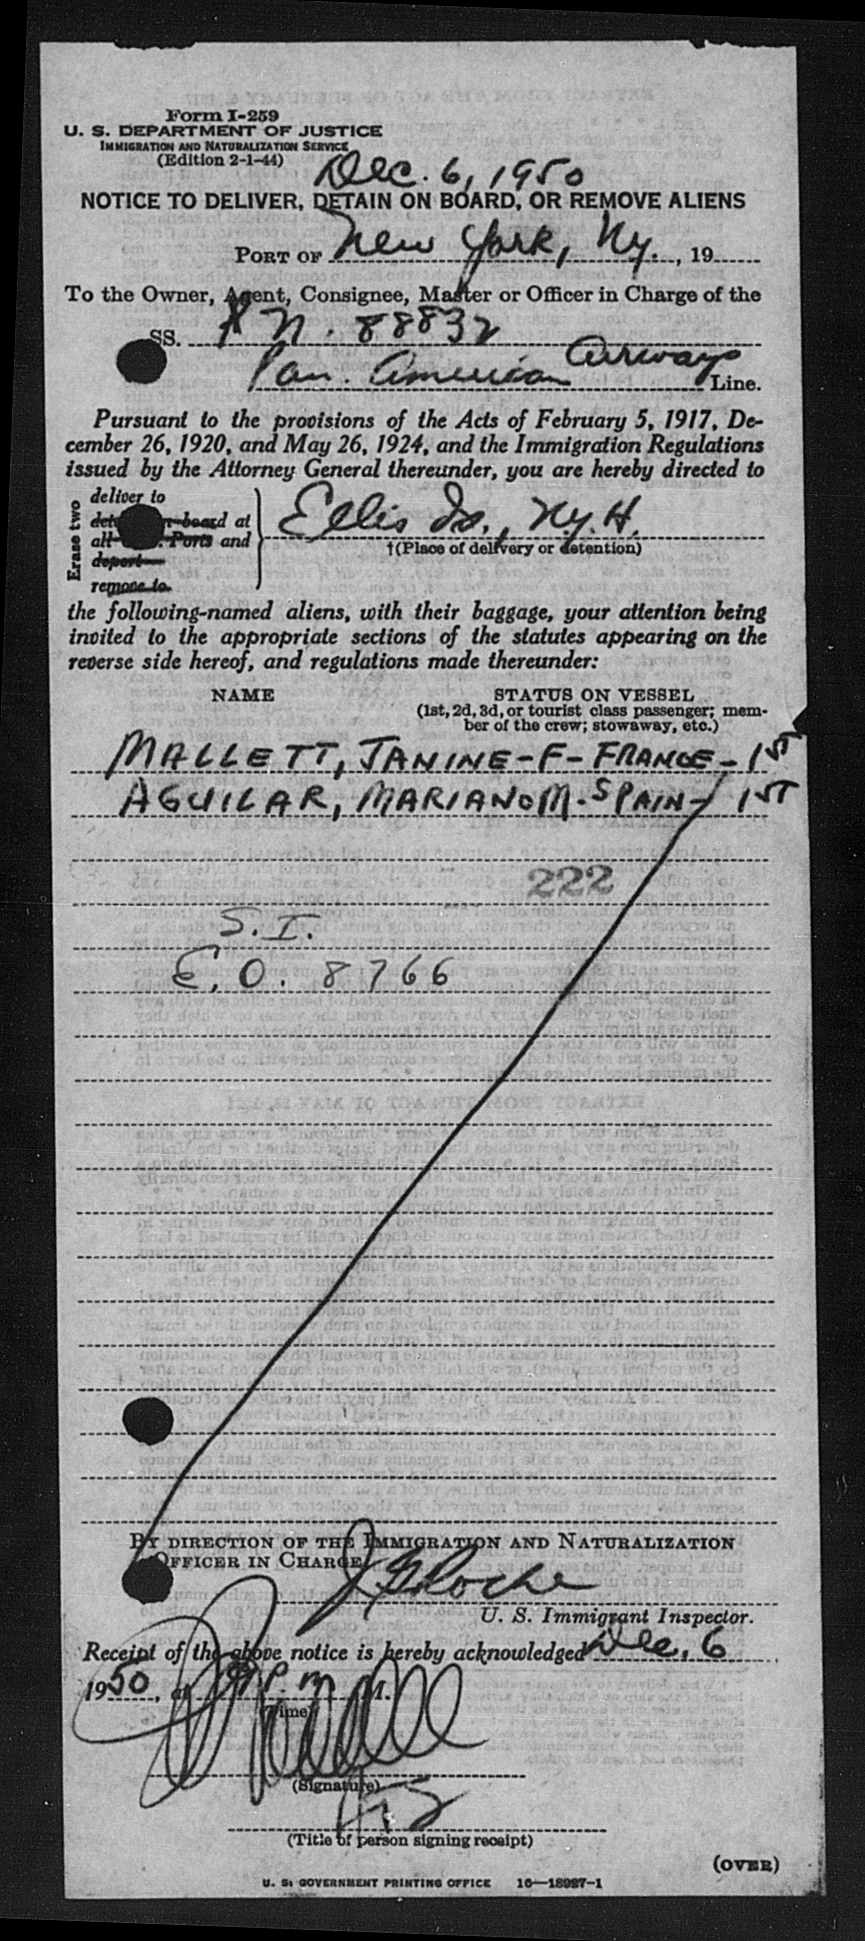 Form I-259
U. S. DEPARTMENT OF JUSTICE
IMMIGRATION AND NATURALIZATION SERVICE
(Edition 2-1-44)
Dec. 6, 1950
NOTICE TO DELIVER, DETAIN ON BOARD, OR REMOVE ALIENS
PORT OF New York, Ny. , 19
To the Owner, Agent, Consignee, Master or Officer in Charge of the
SS. N. 88832
Pan. American Airways Line.
Pursuant to the provisions of the Acts of February 5, 1917, De-
cember 26, 1920, and May 26, 1924, and the Immigration Regulations
issued by the Attorney General thereunder, you are hereby directed to
Erase two
deliver to
board at
all Ports and
deport
remove to
Ellis Is., Ny. H.
†(Place of delivery or detention)
the following-named aliens, with their baggage, your attention being
invited to the appropriate sections of the statutes appearing on the
reverse side hereof, and regulations made thereunder:
NAME STATUS ON VESSEL
(1st, 2d, 3d, or tourist class passenger; mem-
ber of the crew; stowaway, etc.)
MALLETT, JANINE-F-FRANCE-1ST
AGUILAR, MARIANO M. SPAIN-1ST
222
S. I.
E. O. 8766
BY DIRECTION OF THE IMMIGRATION AND NATURALIZATION
OFFICER IN CHARGE
J. Roche
U. S. Immigrant Inspector.
Receipt of the above notice is hereby acknowledged Dec. 6
1950, at P. m M.
(Time)
(Signature)
(Title of person signing receipt)
(OVER)
U. S. GOVERNMENT PRINTING OFFICE 16—18987-1